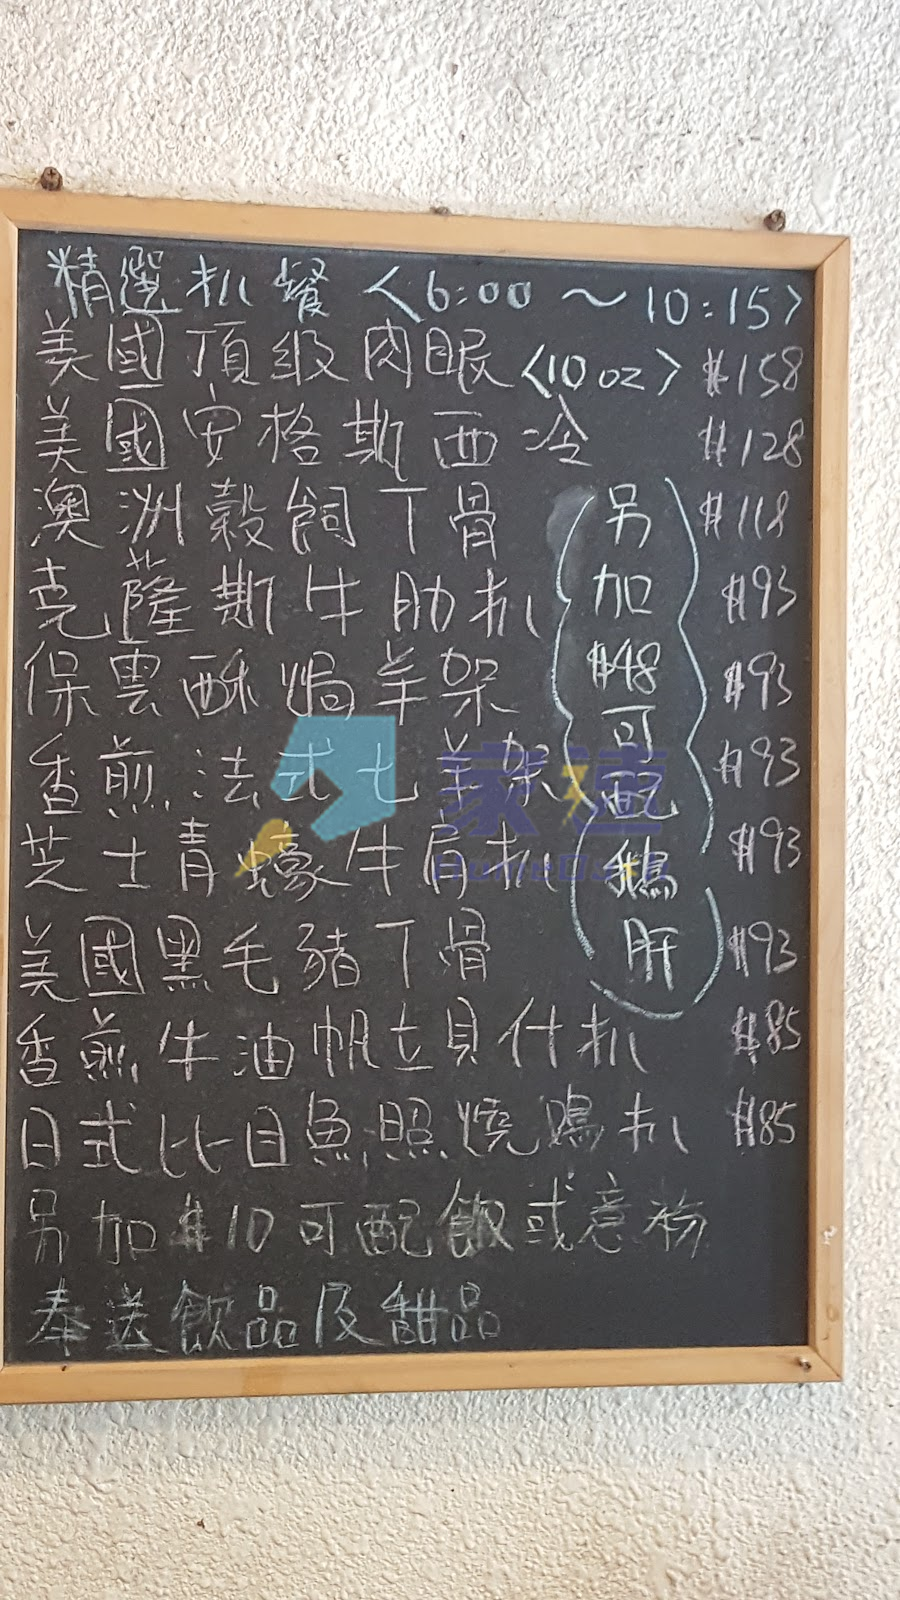 精選扒餐 <6:00 ~ 10:15>
美國頂級肉眼 <10 oz> $158
美國安格斯西冷 $128
澳洲穀飼丁骨 $118
克薩斯牛肋扒 $93
保雲酥焗羊架 $93
香煎法式七羊架 $93
芝士青蠔牛肩扒 $93
美國黑毛豬丁骨 $93
香煎牛油帆立貝什扒 $85
日式比目魚照燒鷄扒 $85
另加$48可配鵝肝
另加$10可配飯或意粉
奉送飲品及甜品
家速
HomeDash